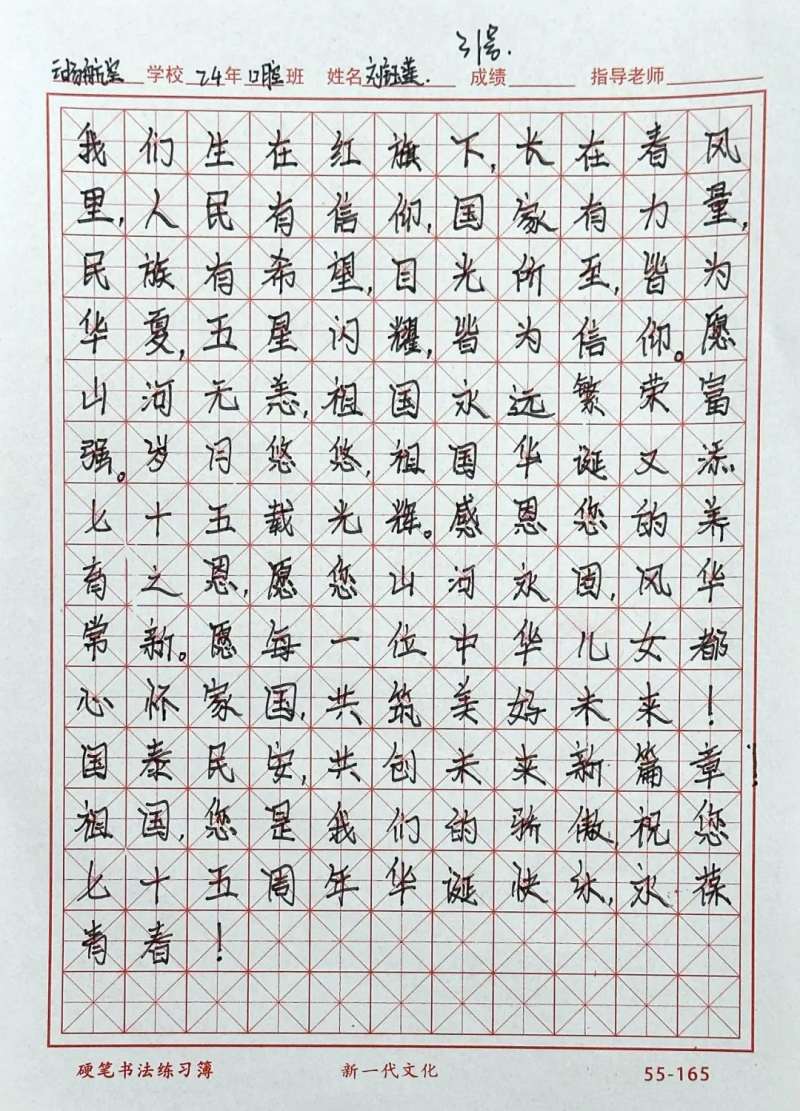 31号.
学校 24年 口腔 班 姓名 刘钰燕. 成绩 指导老师
我们生在红旗下,长在春风
里,人民有信仰,国家有力量,
民族有希望,目光所至,皆为
华夏,五星闪耀,皆为信仰。愿
山河无恙,祖国永远繁荣富
强。岁月悠悠,祖国华诞又添
七十五载光辉。感恩您的养
育之恩,愿您山河永固,风华
常新。愿每一位中华儿女都
心怀家国,共筑美好未来!
国泰民安,共创未来新篇章!
祖国,您是我们的骄傲,祝您
七十五周年华诞快乐,永葆
青春!
硬笔书法练习簿 新一代文化 55-165